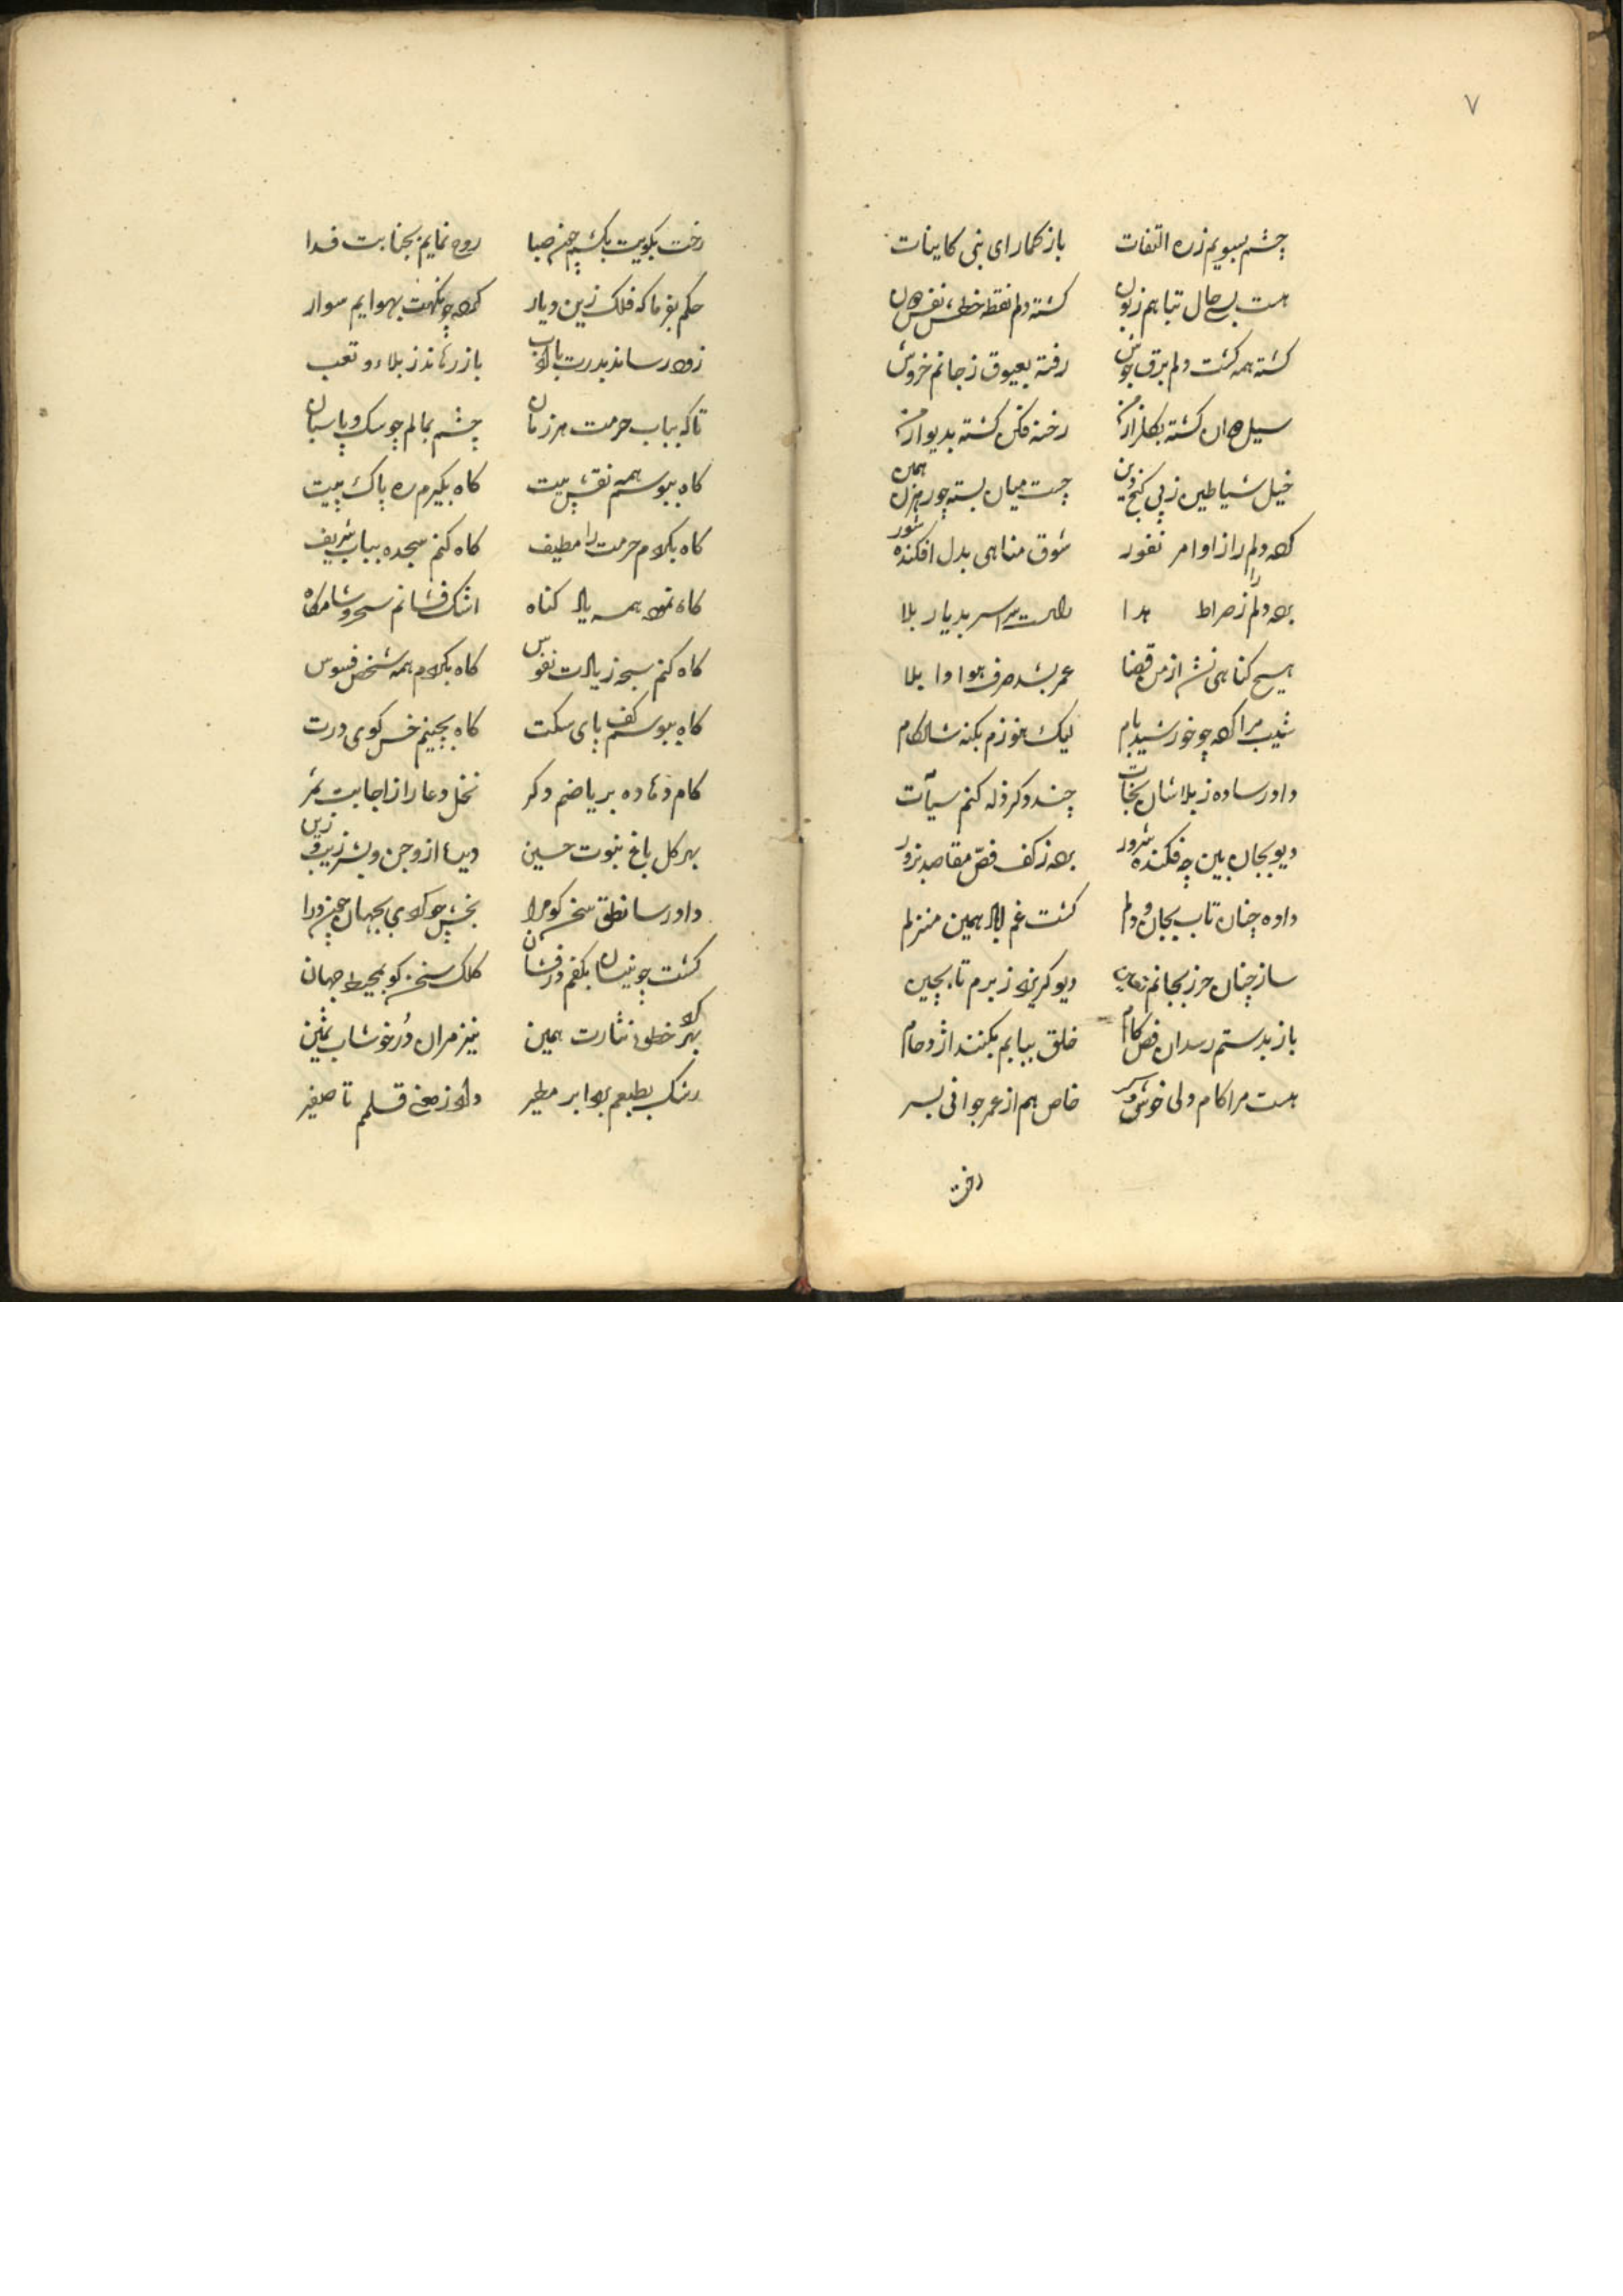 ۷
چشم بسویم زره التفات بازکمار ای نبی کاینات
هست بسی حال تباهم زبون کشته دلم نقطه خط نفس دون
کشته همه کشت دلم برق جوش رفته بعیوق ز جانم خروش
سیل کشته بکلزار رخنه فکن کشته بدیوار
خیل شیاطین ز پی کنج دین چست میان بسته چو رهزن همین
کرده دلم را از اوامر نفور شوق مناهی بدل افکنده شور
برده دلم را ز صراط هدا راست سراسر بدیار بلا
هیچ کناهی نشد از من قضا عمر بشد صرف هوا وا بلا
شیب مرا کرده چو خورشید بام لیک هنوزم بکنه شادکام
داورسا ده ز بلاشان نجات چند دکر زله کنم سیآت
دیو بجان بین چه فکنده شرور برده ز کف فص مقاصد بزور
داده چنان تاب بجان و دلم کشت غم اباد همین منزلم
ساز چنان حرز بجانم دیو کریزد ز برم تا بچین
باز بدستم رسدان فص کام خلق ببابم بکنند ازدحام
هست مرا کام دلی خوش خاص هم از عمر جوانی بسر
رخت
رخت بکویت بکشم چون صبا روح نمایم بجنابت فدا
حکم بفرما که فلک زین دیار کرده چو نکهت بهوایم سوار
زود رساند بدرت با ادب باز رهاند ز بلاء و تعب
تا که بباب حرمت هر زمان چشم بمالم چو سک و پاسبان
کاه ببوسم همه نقش پیت کاه بکیرم ره پاک پیت
کاه بکردم حرمت را مطیف کاه کنم سجده بباب شریف
کاه نمود همه یاد کناه اشک فشانم سحر و شامکاه
کاه کنم سجه ز یادت نفوس کاه بکردم همه شخص فسوس
کاه ببوسم کف پای سکت کاه بچینم خس کوی درت
کام دهاده بریاضم دکر نخل دعا را ز اجابت ثمر
بهر کل باغ نبوت حسین دیده از و جن و بشر زیب و زین
داورسا نطق سخن کو مرا بخش چو کردی بجهان
کشت چو نیسان بکفم درفشان کلک سخن کو بمحیط جهان
بهر خطت نثارت همین نیز مران در خوشاب ثمین
رشک بطبعم بود ابر مطیر داد ز مغ قلمم تا صفیر